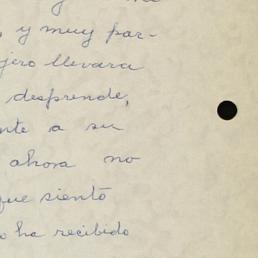 y muy par-
jero llevara
desprende,
nte a su
ahora no
que siento
o ha recibido